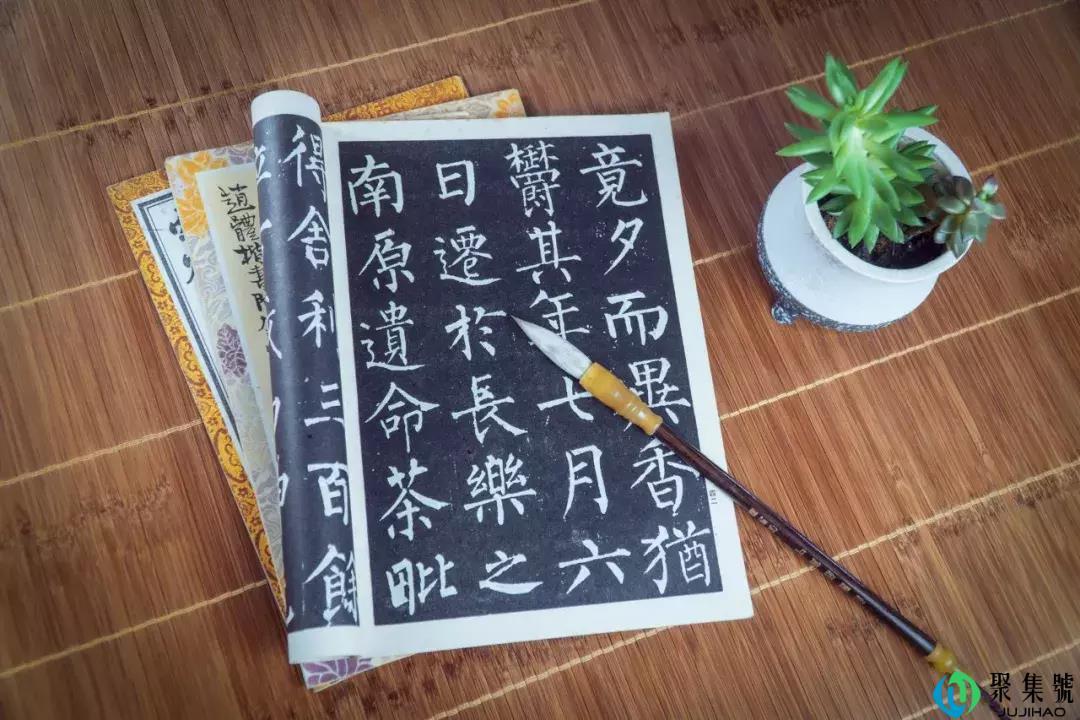 竟夕而異香猶
欝其年七月六
日遷於長樂之
南原遺命茶毗
得舍利三百餘
趙體楷書
四二
聚集號
JUJIHAO